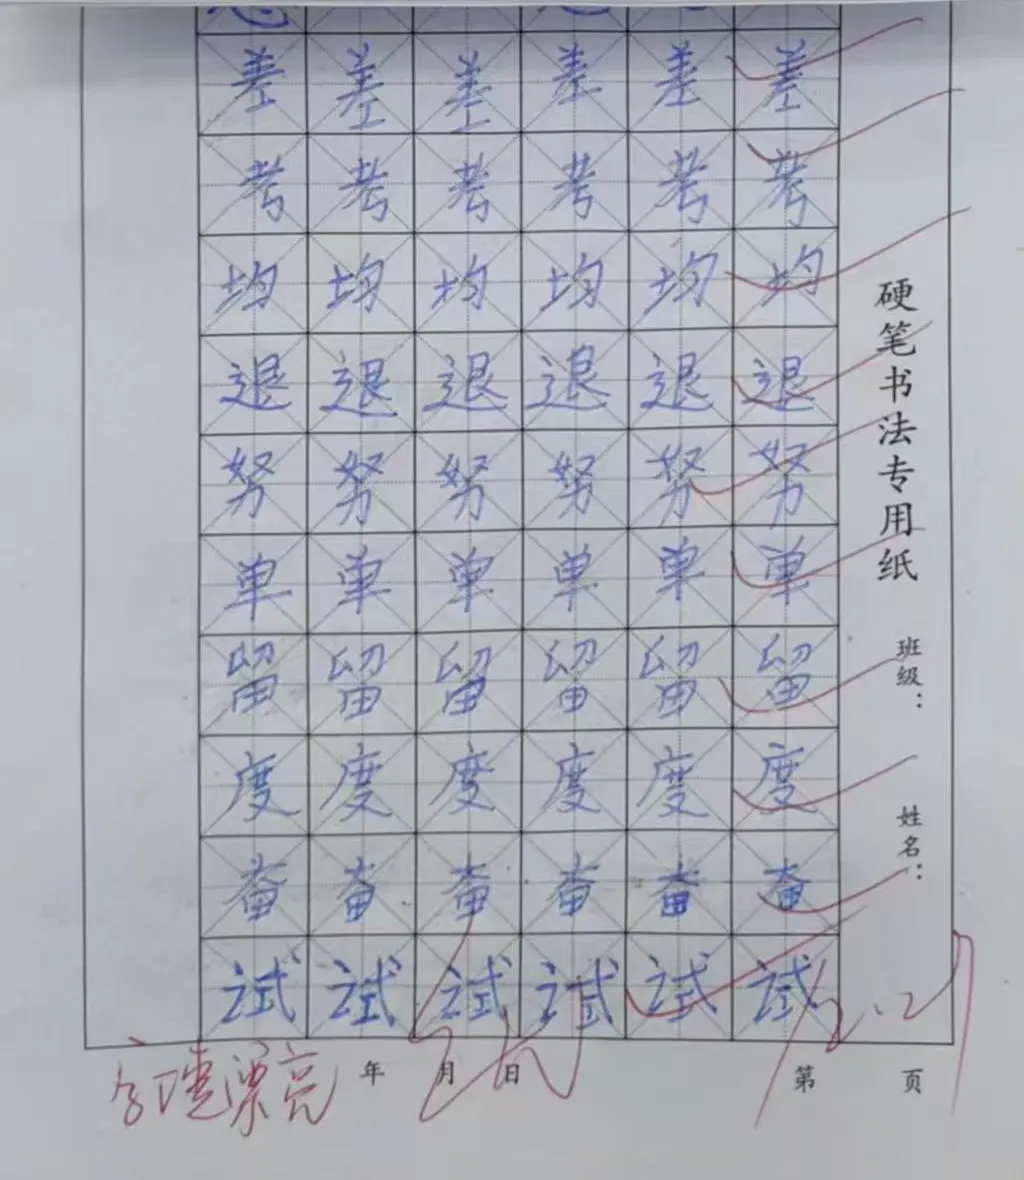 差差差差差差
考考考考考考
均均均均均均
退退退退退退
努努努努努努
单单单单单单
留留留留留留
度度度度度度
奋奋奋奋奋奋
试试试试试试
硬笔书法专用纸
班级：
姓名：
漂亮
年 月 日
第 页